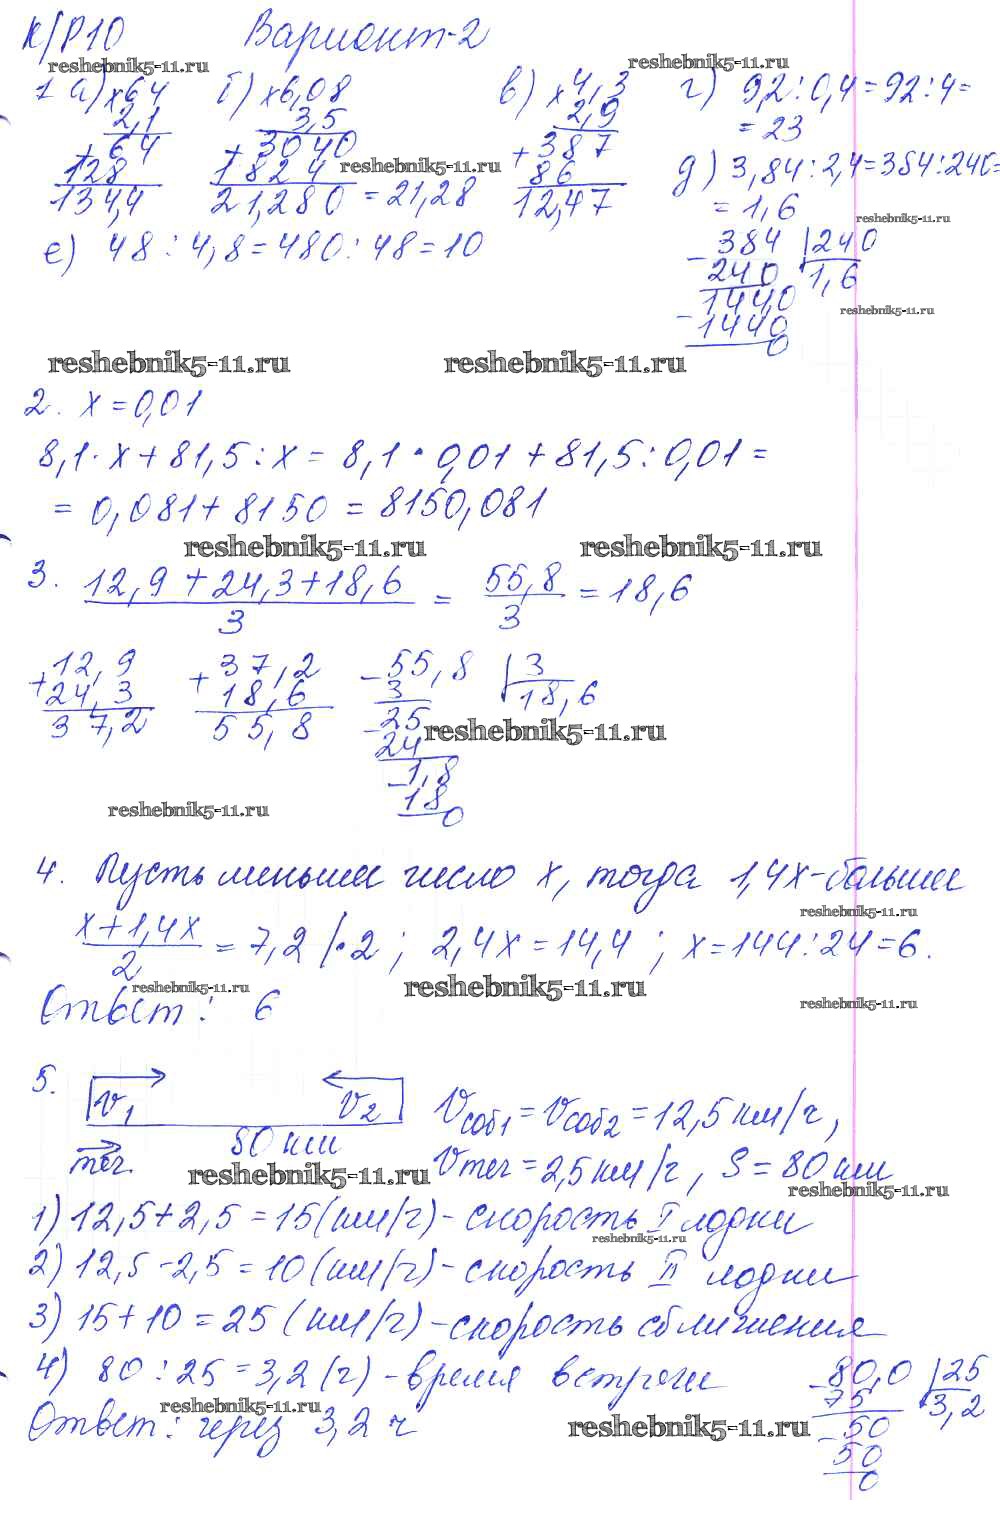 К/Р10 Вариант-2
reshebnik5-11.ru reshebnik5-11.ru
1 а) ×64 б) ×6,08 в) ×4,3 г) 9,2:0,4=92:4=
2,1 3,5 2,9 =23
+64 +3040 +387 д) 3,84:2,4=384:240=
128 1824 reshebnik5-11.ru 86 =1,6
134,4 21,280 =21,28 12,47 reshebnik5-11.ru
е) 48:4,8=480:48=10 -384 |240
240 1,6
1440 reshebnik5-11.ru
-1440
0
reshebnik5-11.ru reshebnik5-11.ru
2. x=0,01
8,1·x+81,5:x=8,1·0,01+81,5:0,01=
=0,081+8150=8150,081
reshebnik5-11.ru reshebnik5-11.ru
3. 12,9+24,3+18,6 = 55,8 =18,6
3 3
+12,9 +37,2 -55,8 |3
24,3 18,6 3 18,6
37,2 55,8 -25 reshebnik5-11.ru
24
-1,8
reshebnik5-11.ru 18
0
4. Пусть меньшее число x, тогда 1,4x-большее
reshebnik5-11.ru
x+1,4x =7,2 |·2; 2,4x=14,4; x=144:24=6.
2
reshebnik5-11.ru reshebnik5-11.ru reshebnik5-11.ru
Ответ: 6
5. V1 V2 Vсоб1=Vсоб2=12,5км/ч,
80 км
теч. reshebnik5-11.ru Vтеч=2,5км/ч, S=80км
reshebnik5-11.ru
1) 12,5+2,5=15(км/ч)-скорость I лодки
reshebnik5-11.ru
2) 12,5-2,5=10(км/ч)-скорость II лодки
3) 15+10=25(км/ч)-скорость сближения
4) 80:25=3,2(ч)-время встречи -80,0 |25
reshebnik5-11.ru 75 3,2
Ответ: через 3,2 ч reshebnik5-11.ru -50
50
0